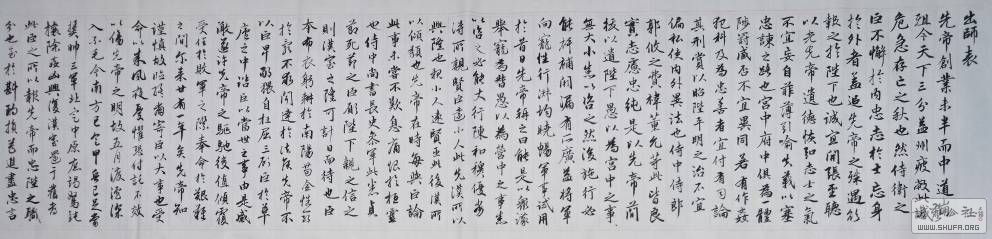 出師表
先帝創業未半而中道崩
殂今天下三分益州疲敝此誠
危急存亡之秋也然侍衛之
臣不懈於内忠志於士忘身
於外者蓋追先帝之殊遇欲
報之於陛下也誠宜開張聖聽
以光先帝遺德恢弘志士之氣
不宜妄自菲薄引喻失義以塞
忠諫之路也宮中府中俱為一體
陟罰臧否不宜異同若有作姦
犯科及為忠善者宜付有司論
其刑賞以昭陛下平明之治不宜
偏私使内外異法也侍中侍郎
郭攸之費禕董允等此皆良
實志慮忠純是以先帝簡
拔以遺陛下愚以為宮中之事
無大小悉以咨之然後施行必
能裨補闕漏有所廣益將軍
向寵性行淑均曉暢軍事試用
於昔日先帝稱之曰能是以眾議
舉寵為督愚以為營中之事悉
以咨之必能使行陳和穆優劣
得所親賢臣遠小人此先漢所以
興隆也親小人遠賢臣此後漢所
以傾頹也先帝在時每與臣論
此事未嘗不歎息痛恨於桓靈
也侍中尚書長史參軍此悉貞
亮死節之臣願陛下親之信之
則漢室之隆可計日而待也臣
本布衣躬耕於南陽苟全性命
於亂世不求聞達於諸侯先帝不
以臣卑鄙猥自枉屈三顧臣於草
廬之中諮臣以當世之事由是感
激遂許先帝以驅馳後值傾覆
受任於敗軍之際奉命於危難
之間尔來廿有一年矣先帝知
臣謹慎故臨崩寄臣以大事也受
命以來夙夜憂慮恐付託不效
以傷先帝之明故五月渡瀘深
入不毛今南方已定甲兵已足當
獎帥三軍北定中原庶竭駑鈍
攘除姦凶興復漢室還于舊都
此臣之所以報先帝而忠陛下之職
分也至於斟酌損益進盡忠言
WWW.SHUFA.ORG